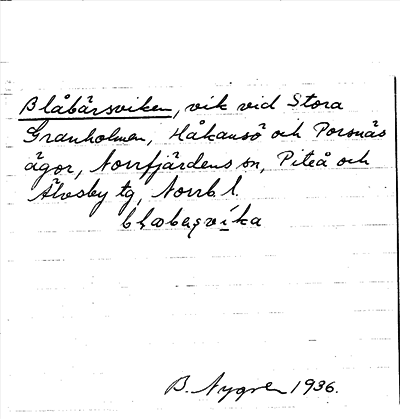 Blåbärsviken, vik vid Stora
Granholmen, Håkansö och Porsnäs
ägor, Norrfjärdens sn, Piteå och
Älvsby tg, Norrb. l.
B. Nygren 1936.